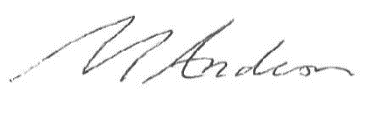 M Anderson